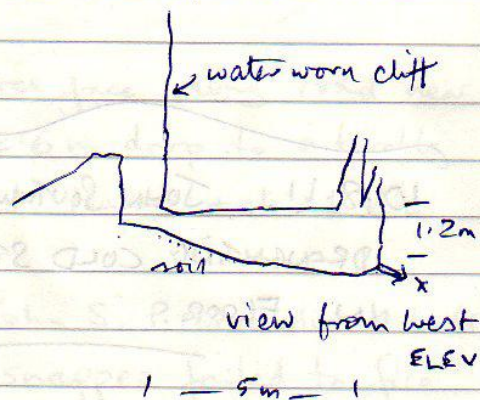 water worn cliff
1.2m
soil
x
view from west
ELEV
5m